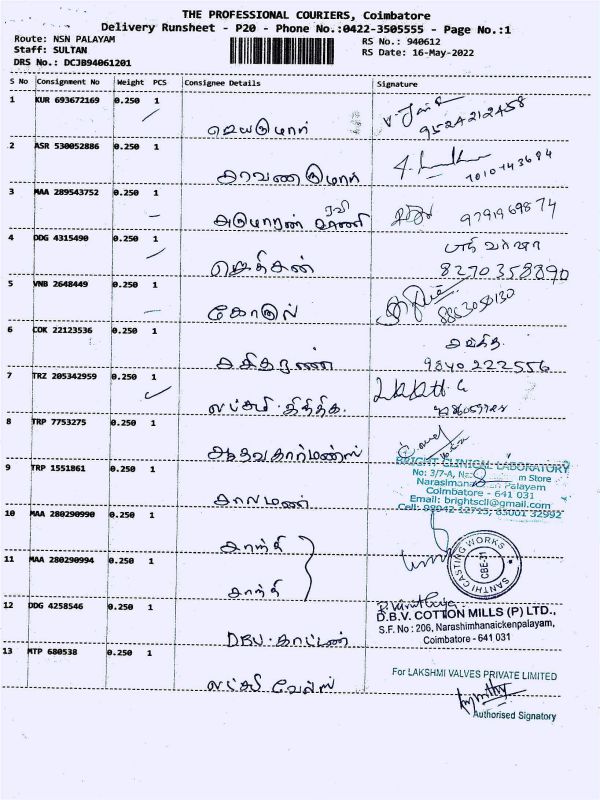 THE PROFESSIONAL COURIERS, Coimbatore
Delivery Runsheet - P20 - Phone No.:0422-3505555 - Page No.:1
Route: NSN PALAYAM
RS No.: 940612
Staff: SULTAN
RS Date: 16-May-2022
DRS No.: DCJB94061201
S No Consignment No Weight PCS Consignee Details Signature
1 KUR 693672169 0.250 1
ஜெயகுமார்
9524212458
2 ASR 530052886 0.250 1
சரவணகுமார்
7010743684
3 MAA 289543752 0.250 1
ரவி
குமாரன் வாணி
9791969874
4 DDG 4315490 0.250 1
8270358890
5 VNB 2648449 0.250 1
கோகுல்
8863050130
6 COK 22123536 0.250 1
9840222556
7 TRZ 205342959 0.250 1
லட்சுமி
8 TRP 7753275 0.250 1
ஆதவகார்மண்ஸ்
BRIGHT CLINICAL LABORATORY
No: 3/7-A, m Store
Palayam
9 TRP 1551861 0.250 1
Coimbatore - 641 031
Email: brightscll@gmail.com
Cell: 98942 12713, 65001 32992
10 MAA 280290990 0.250 1
சாந்தி
11 MAA 280290994 0.250 1
சாந்தி
SANTHI CASTING WORKS
CBE-31
12 DDG 4258546 0.250 1
DBV காட்டன்
D.B.V. COTTON MILLS (P) LTD.,
S.F. No : 206, Narashimhanaickenpalayam,
Coimbatore - 641 031
13 MTP 680538 0.250 1
லட்சுமி வேல்ஸ்
For LAKSHMI VALVES PRIVATE LIMITED
Authorised Signatory